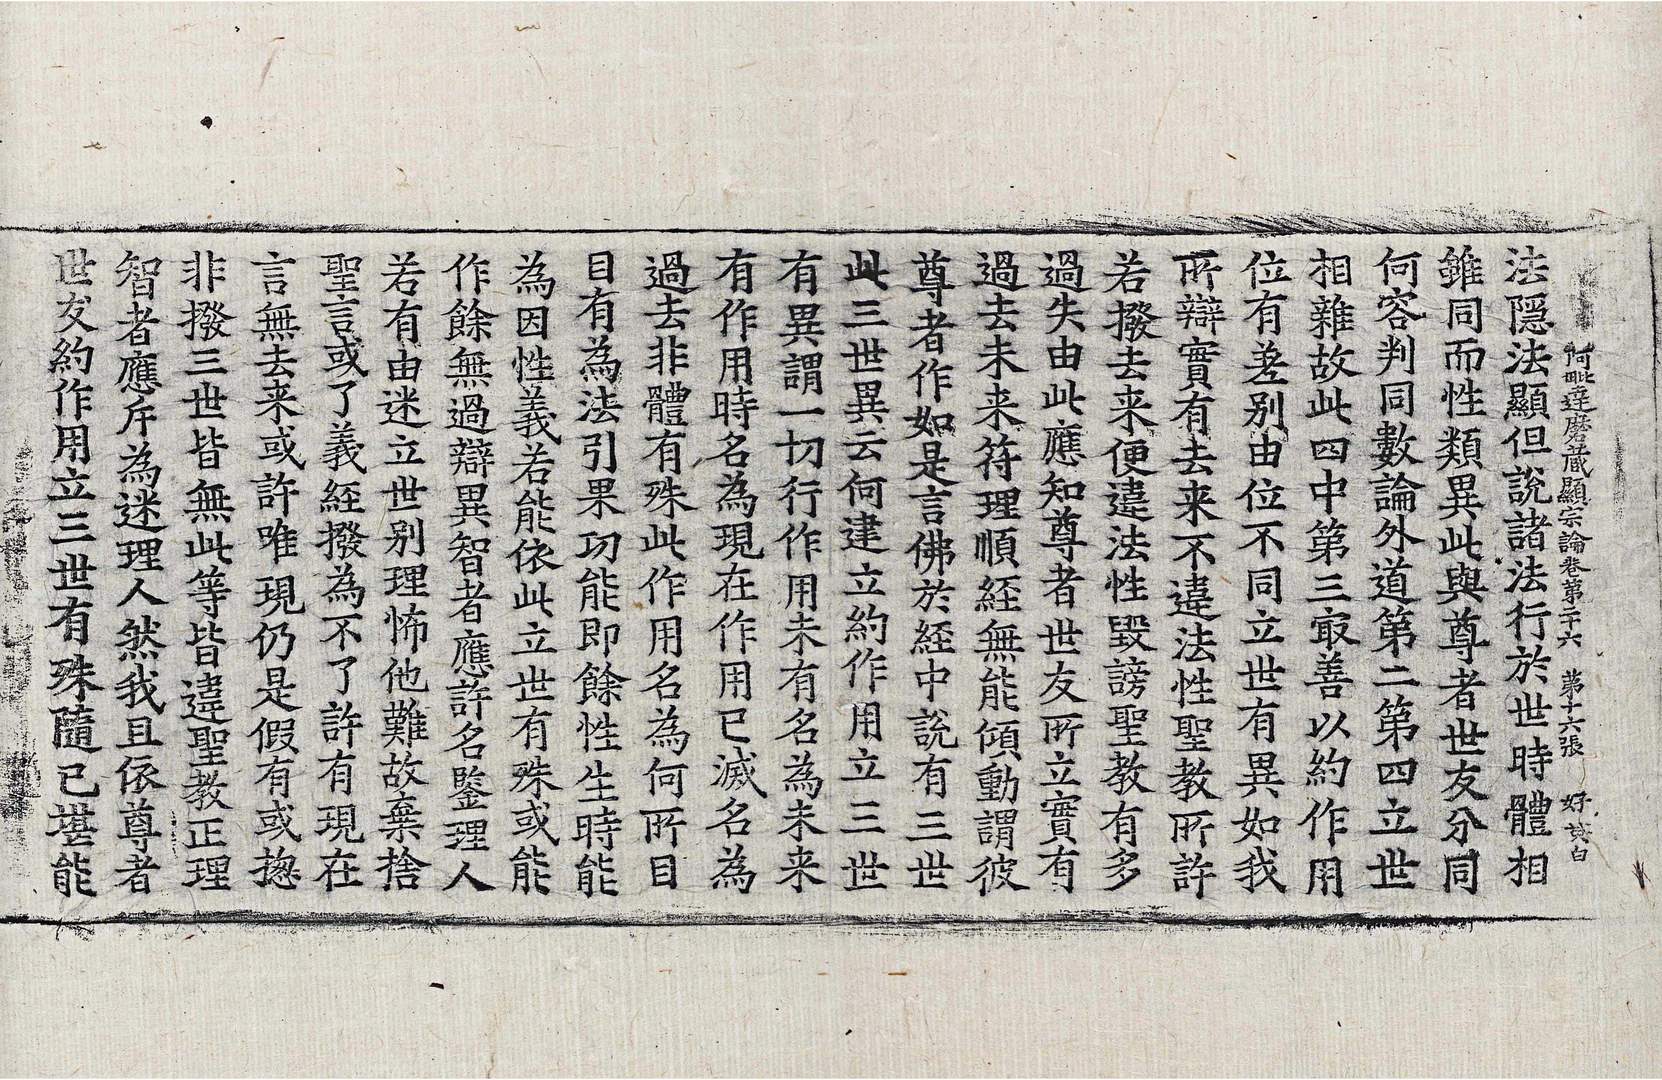 阿毗達磨藏顯宗論卷第二十六　第十六張　好
法隱法顯但說諸法行於世時體相
雖同而性類異此與尊者世友分同
何容判同數論外道第二第四立世
相雜故此四中第三㝡善以約作用
位有差別由位不同立世有異如我
所辯實有去来不違法性聖教所許
若撥去来便違法性毀謗聖教有多
過失由此應知尊者世友所立實有
過去未来符理順經無能傾動謂彼
尊者作如是言佛於經中說有三世
此三世異云何建立約作用立三世
有異謂一切行作用未有名為未来
有作用時名為現在作用已滅名為
過去非體有殊此作用名為何所目
目有為法引果功能即餘性生時能
為因性義若能依此立世有殊或能
作餘無過辯異智者應許名鑒理人
若有由迷立世別理怖他難故棄捨
聖言或了義經撥為不了許有現在
言無去来或許唯現仍是假有或揔
非撥三世皆無此等皆違聖教正理
智者應斥為迷理人然我且依尊者
世友約作用立三世有殊隨已堪能